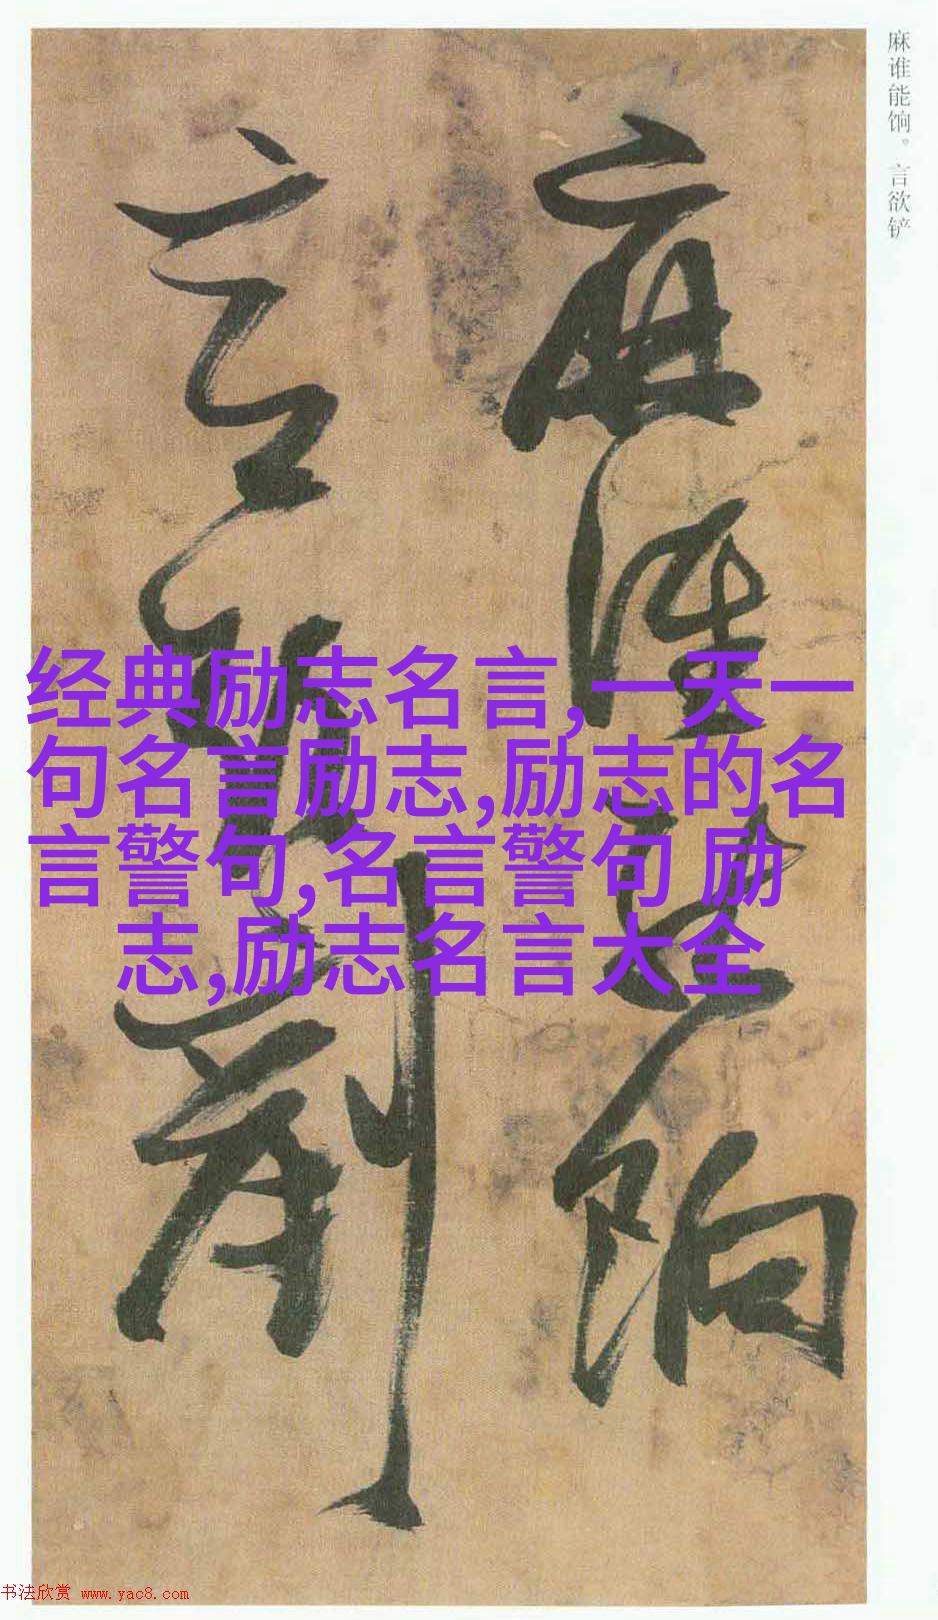 麻谁能饷。言欲铲
麻谁能饷
言欲剷
经典励志名言,一天一
句名言励志,励志的名
言警句,名言警句 励
志,励志名言大全
书法欣赏 www.yac8.com